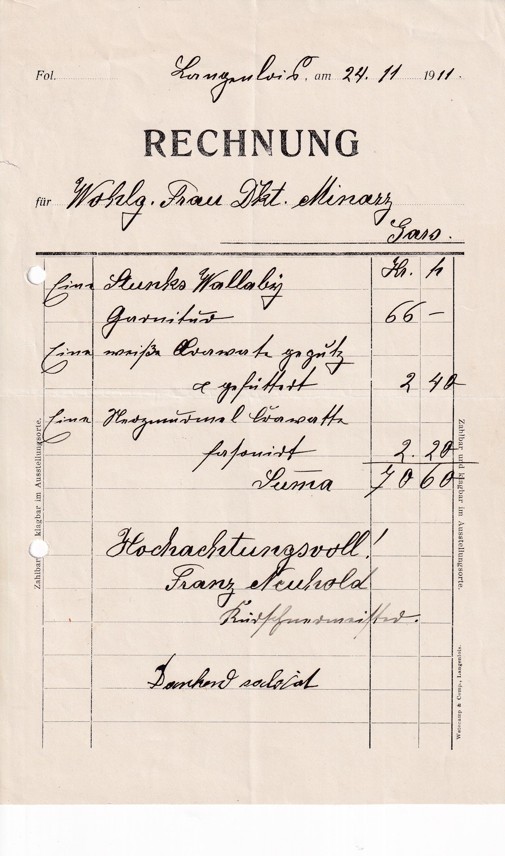 Fol. Langenlois, am 24. 11 1911.
RECHNUNG
für Wohlg. Frau Dkt. Minarz
Gars.
Kr. h
Eine Skunks Wallaby
Garnitur 66 —
Eine weiße Crawate geputz
& gefüttert 2 40
Eine Nerzmurmel Crawatte
fasonirt 2. 20
Suma 70 60
Hochachtungsvoll!
Franz Neuhold
Kürschnermeister.
Dankend saldiert
Zahlbar klagbar im Ausstellungsorte.
Zahlbar und klagbar im Ausstellungsorte.
& Comp., Langenlois.